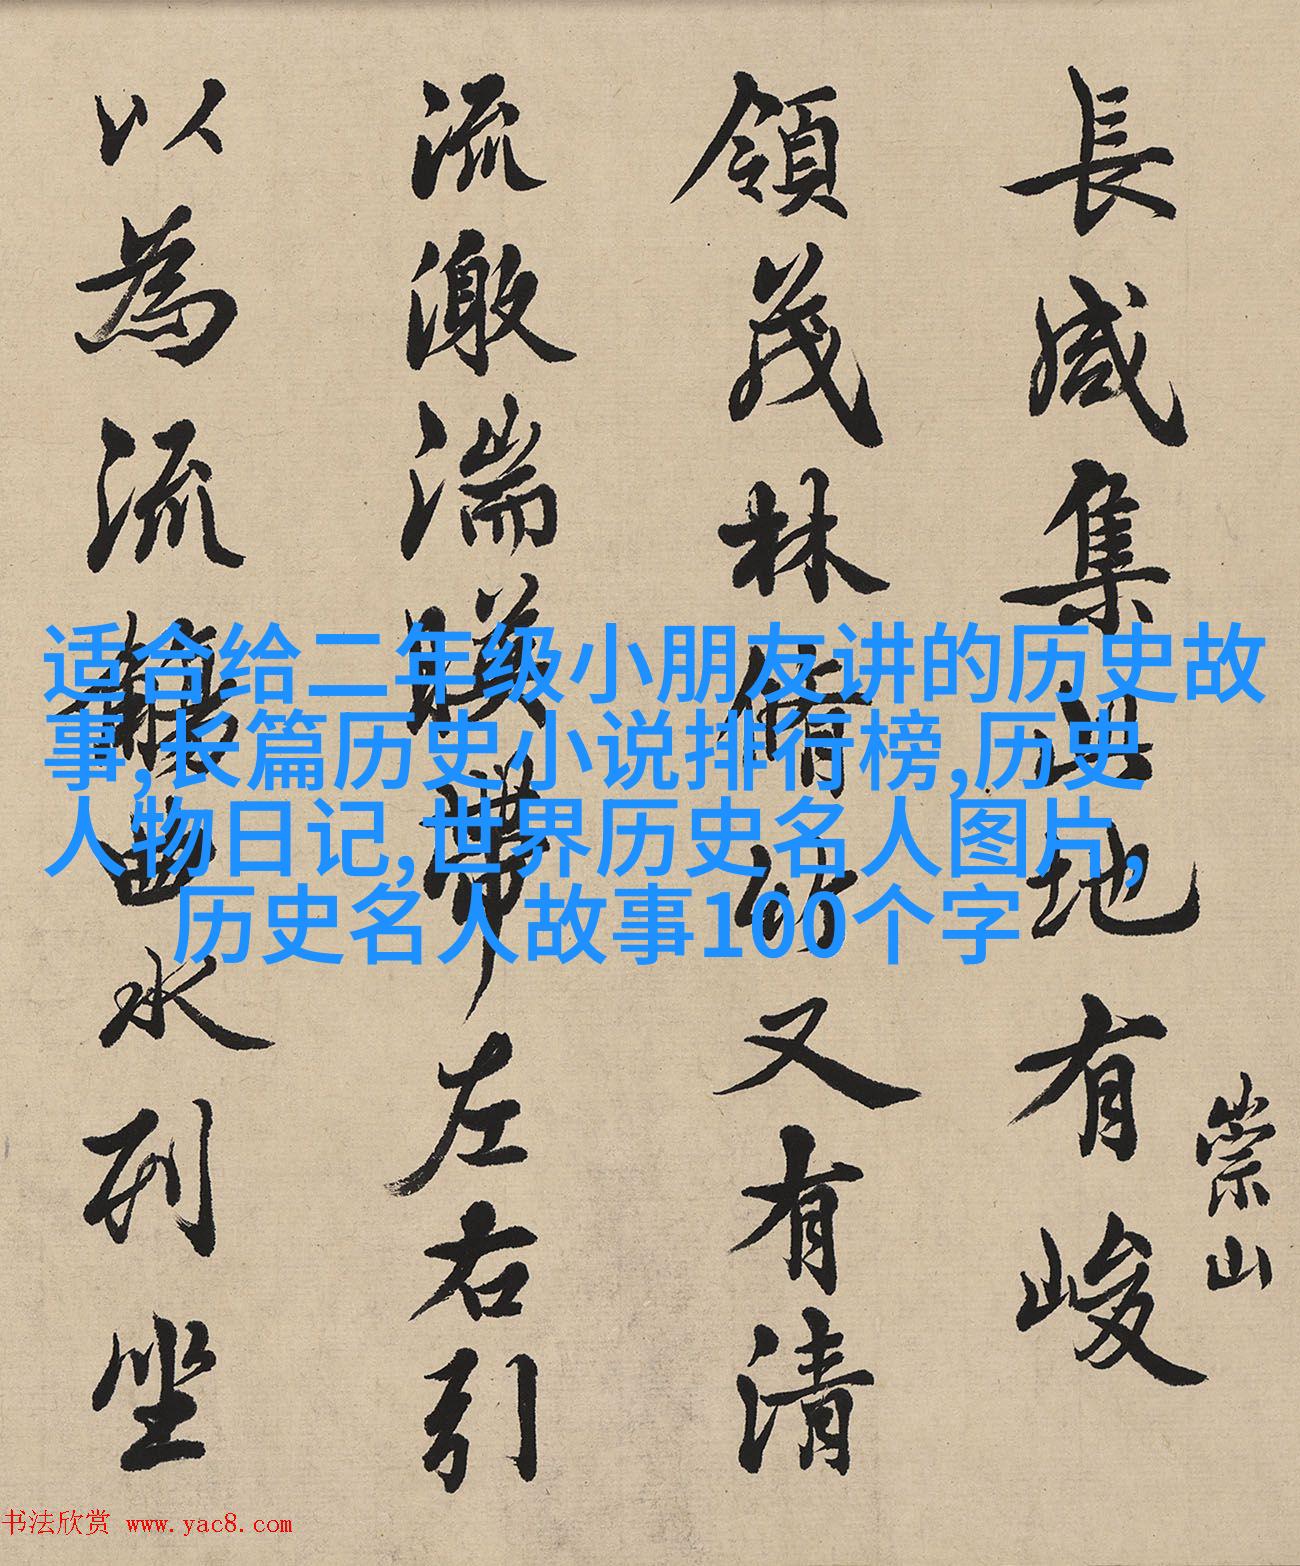 長咸集此地有峻
崇山
領茂林脩竹又有清
流激湍暎帶左右引
以為流觴曲水列坐
适合给二年级小朋友讲的历史故
事,长篇历史小说排行榜,历史
人物日记,世界历史名人图片,
历史名人故事100个字
书法欣赏 www.yac8.com